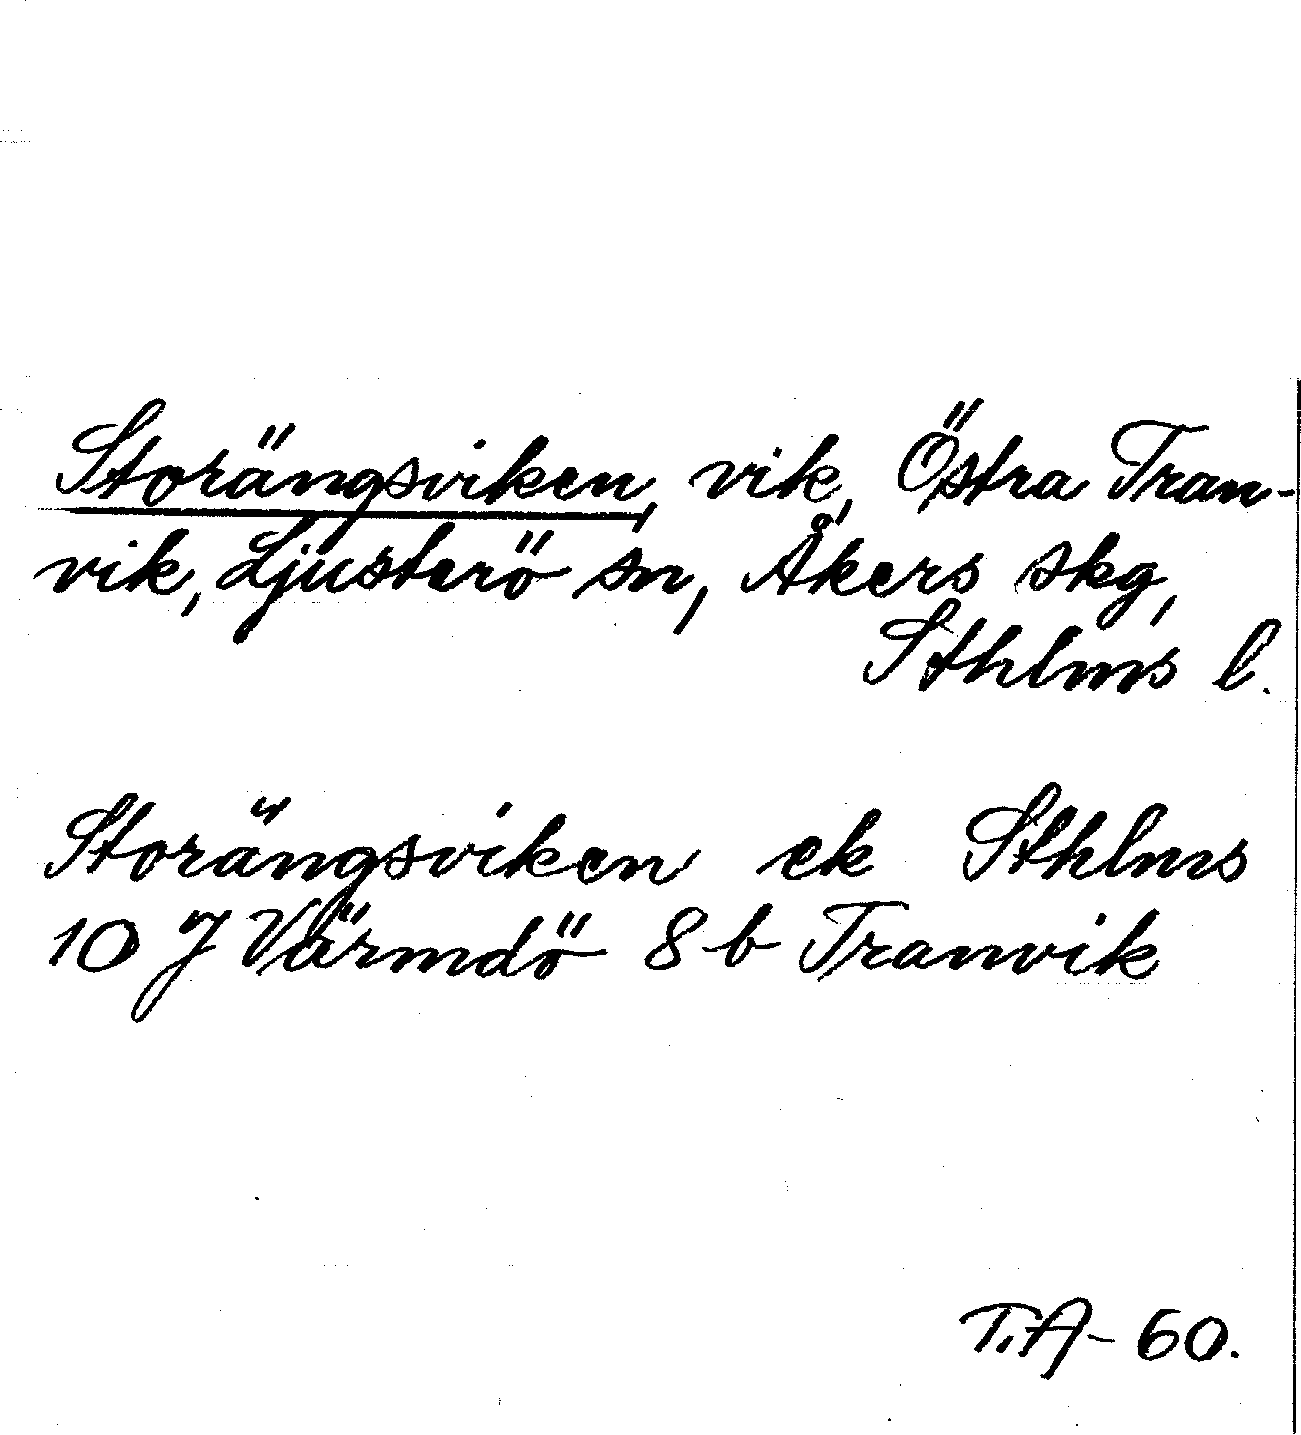 Storängsviken, vik, Östra Tran-
vik, Ljusterö sn, Åkers skg,
Sthlms l.
Storängsviken ek Sthlms
10 J Värmdö 8 b Tranvik
T.A-60.